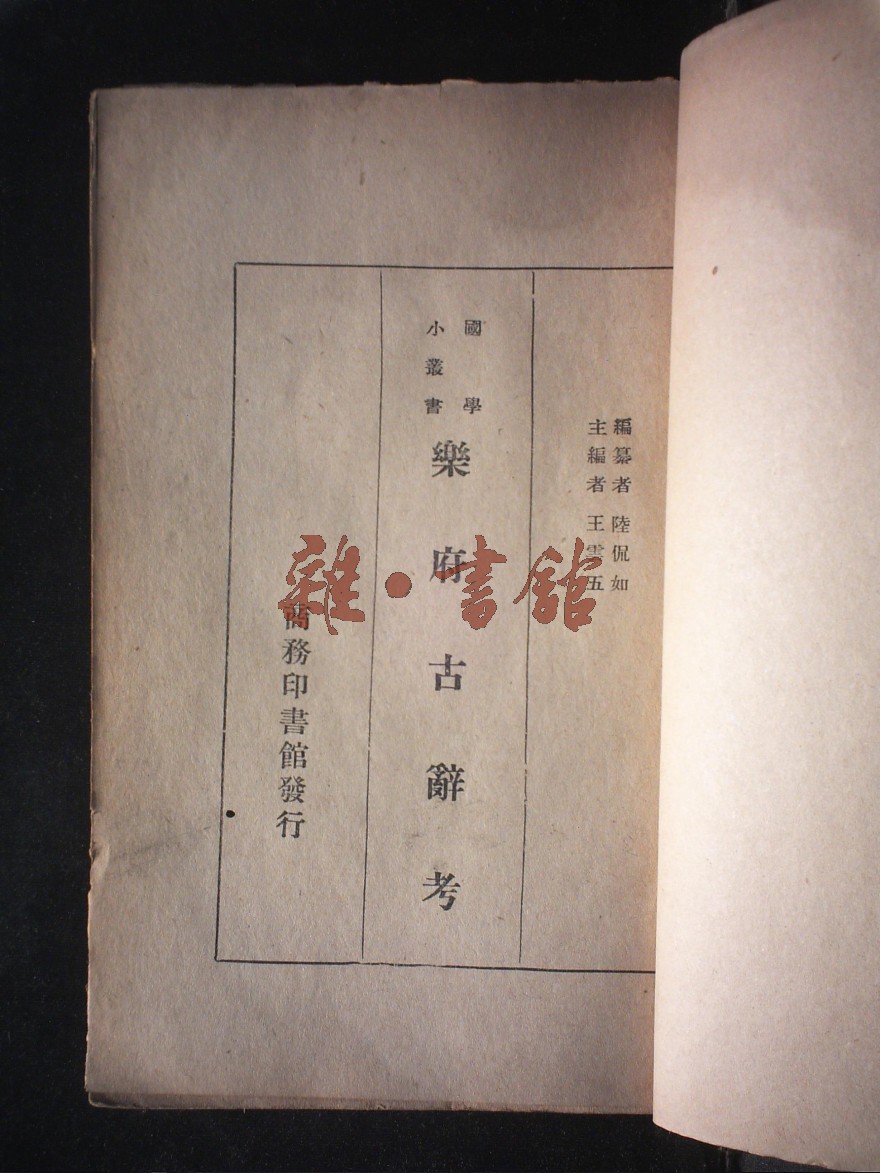 編纂者 陸侃如
主編者 王雲五
國學
小叢書
樂府古辭考
商務印書館發行
雜·書館